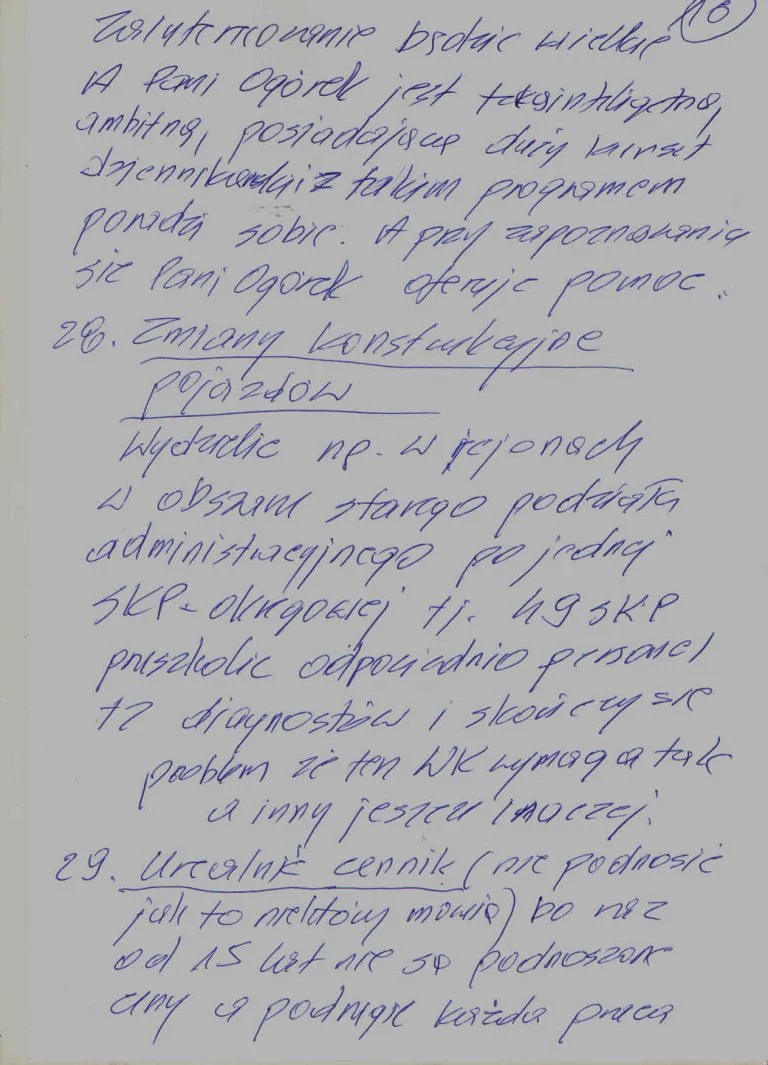 16
Zainteresowanie będzie wielkie
A Pani Ogórek jest taka inteligetna,
ambitną, posiadającą duży
dziennikarski z takim programem
poradzi sobie. A przy zapoznawaniu
się Pani Ogórek oferuje pomoc.
28. Zmiany konstrukcyjne
pojazdów
Wydzielic np. w rejonach
w obszarze starego podziału
administracyjnego po jednej
SKP-okręgowej tj. 49 SKP
przeszkolic odpowiednio personel
tz diagnostów i skończy się
problem że ten WK wymaga tak
a inny jeszcze inaczej.
29. Urealnić cennik (nie podnosić
jak to niektórzy mówią) bo raz
od 15 lat nie są podnoszone
ceny a podrugie każda praca